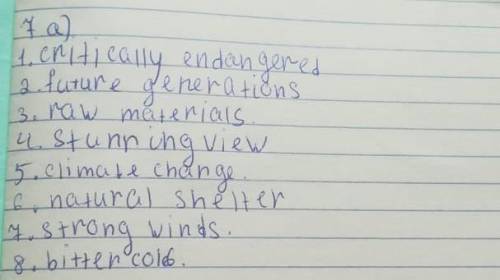 7 a).
1. critically endangered
2. future generations
3. raw materials.
4. stunning view
5. climate change.
6. natural shelter
7. strong winds.
8. bitter cold.